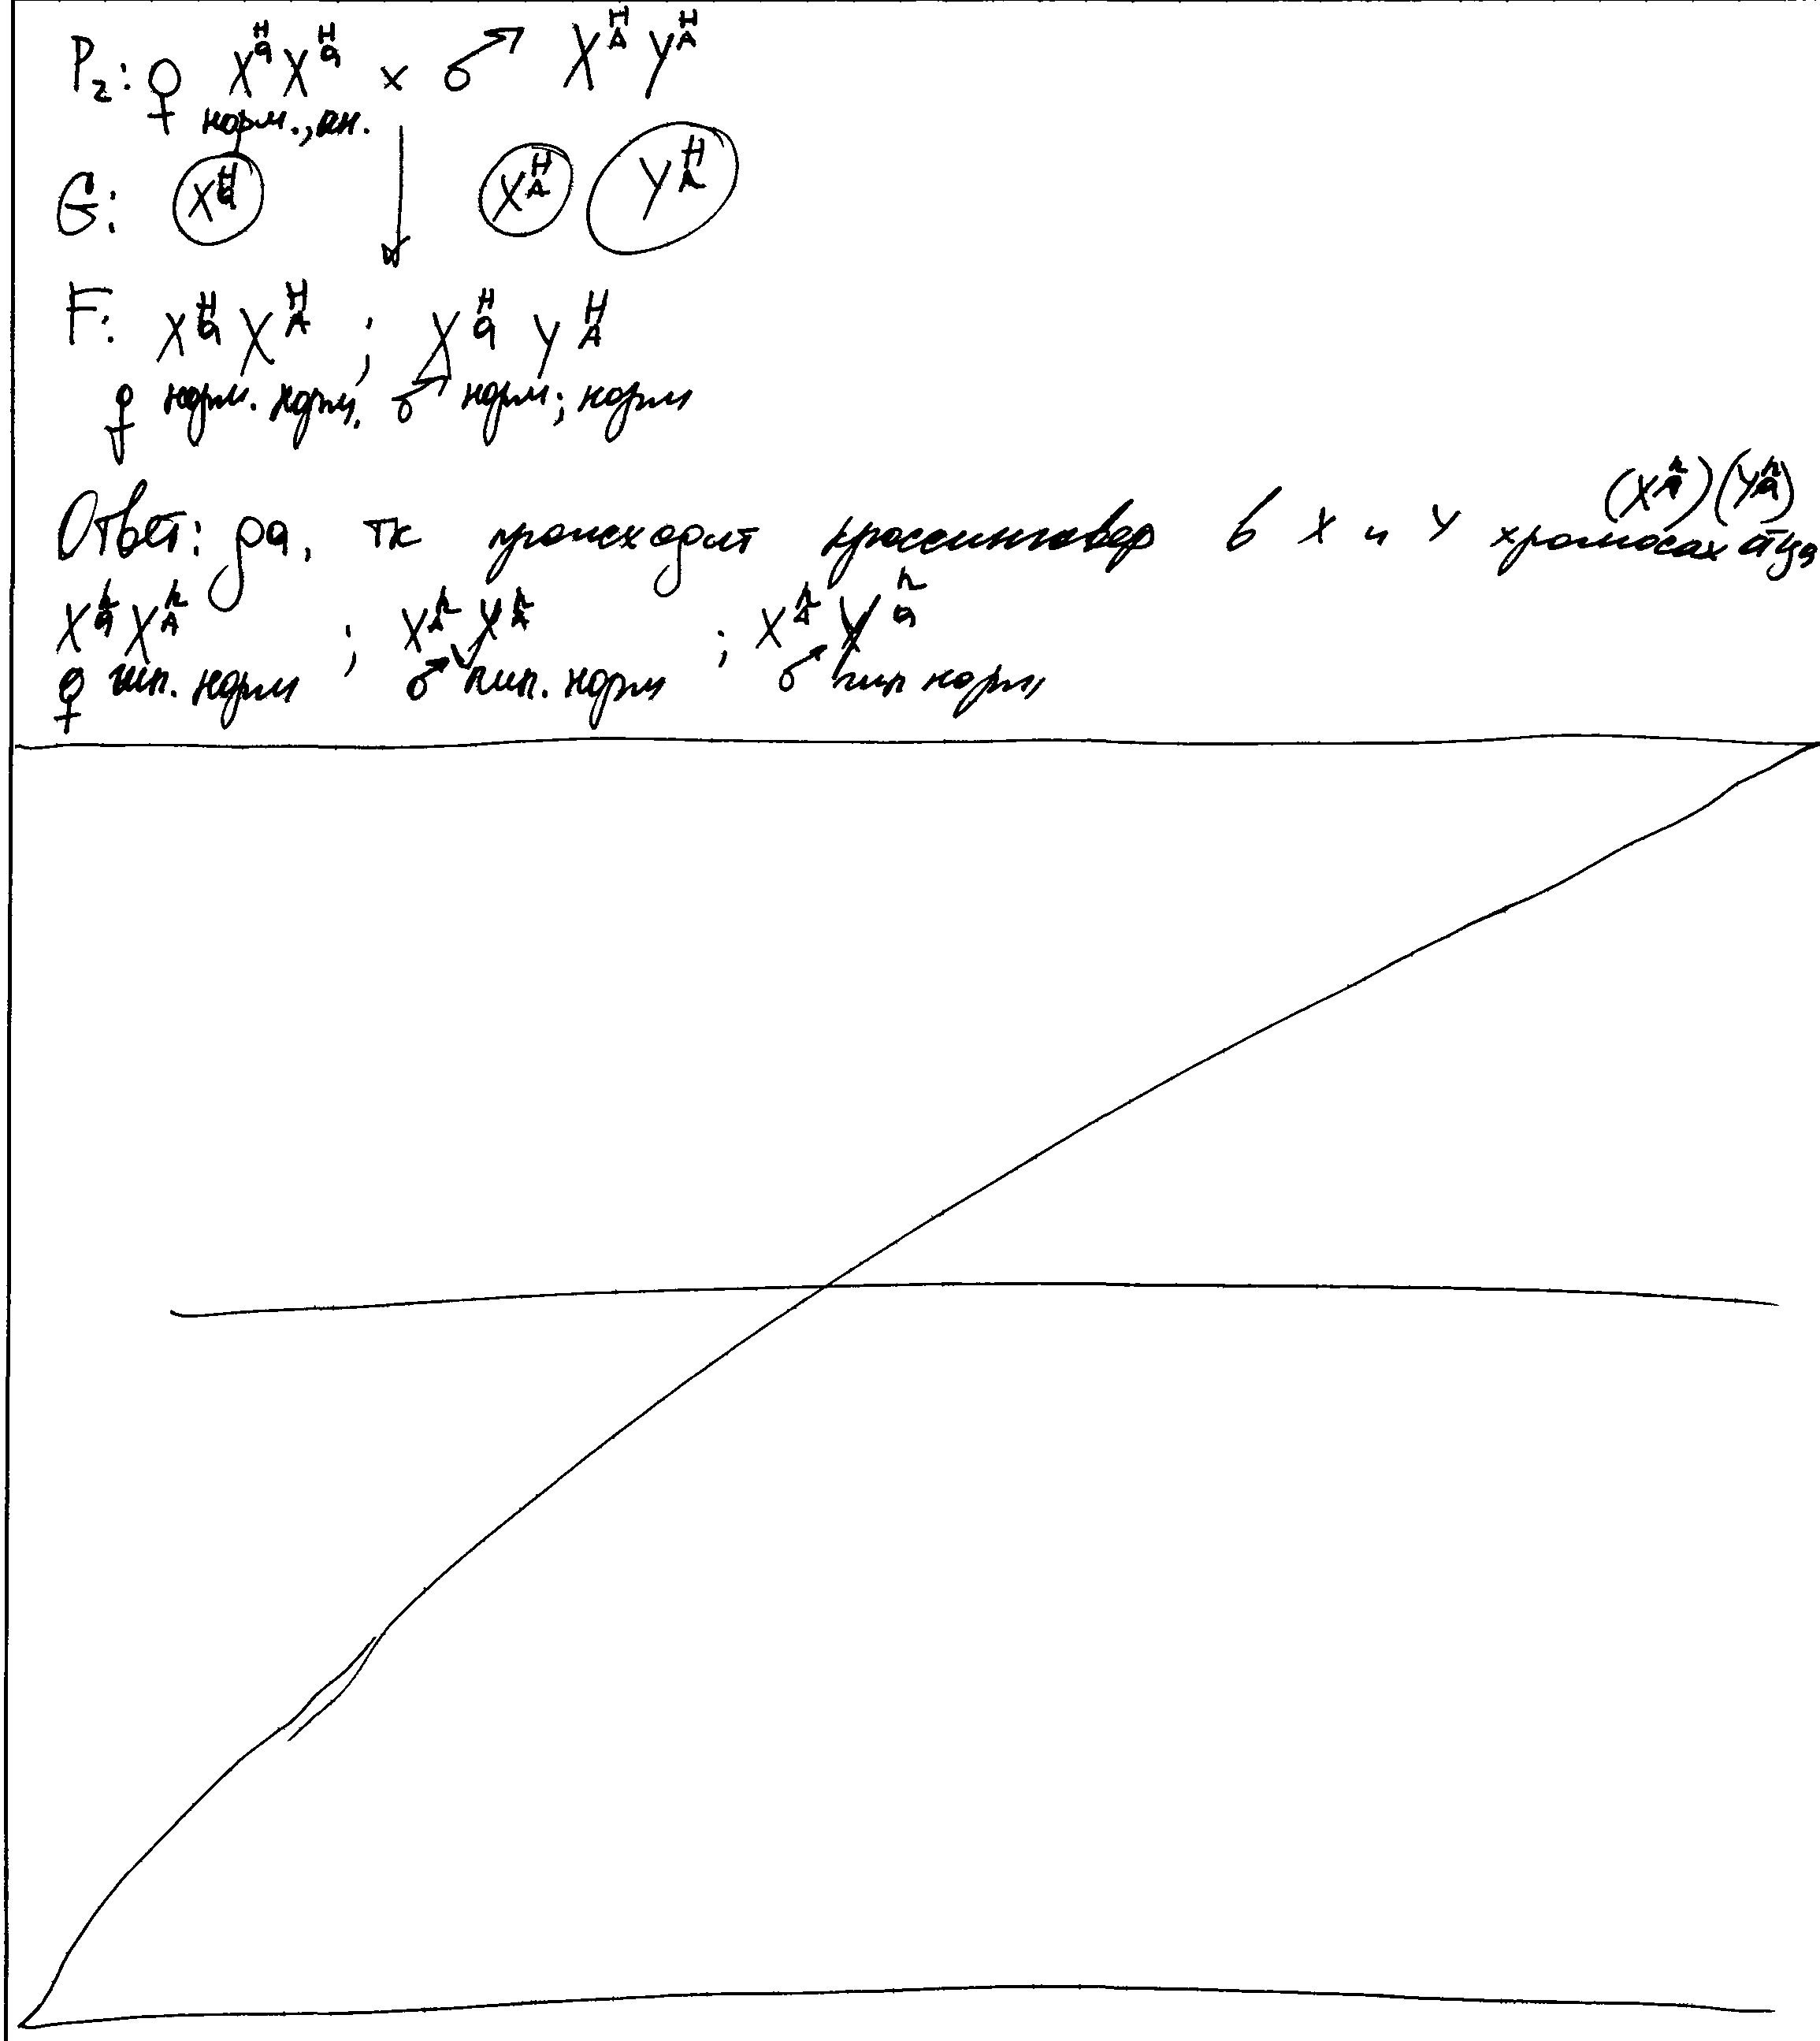 P₂: ♀ XᴴₐXᴴₐ × ♂ XᴴᴀYᴴᴀ
норм., ан.
G: Xᴴₐ Xᴴᴀ Yᴴᴀ
F: XᴴₐXᴴᴀ ; XᴴₐYᴴᴀ
♀ норм. норм. ♂ норм; норм
(Xʰₐ)(Yʰₐ)
Ответ: да, тк происходит кроссинговер в X и Y хромосах отца
XʰₐXʰᴀ ; XʰᴀYʰᴀ ; XʰᴀYʰₐ
♀ гип. норм ♂ гип. норм ♂ гип норм